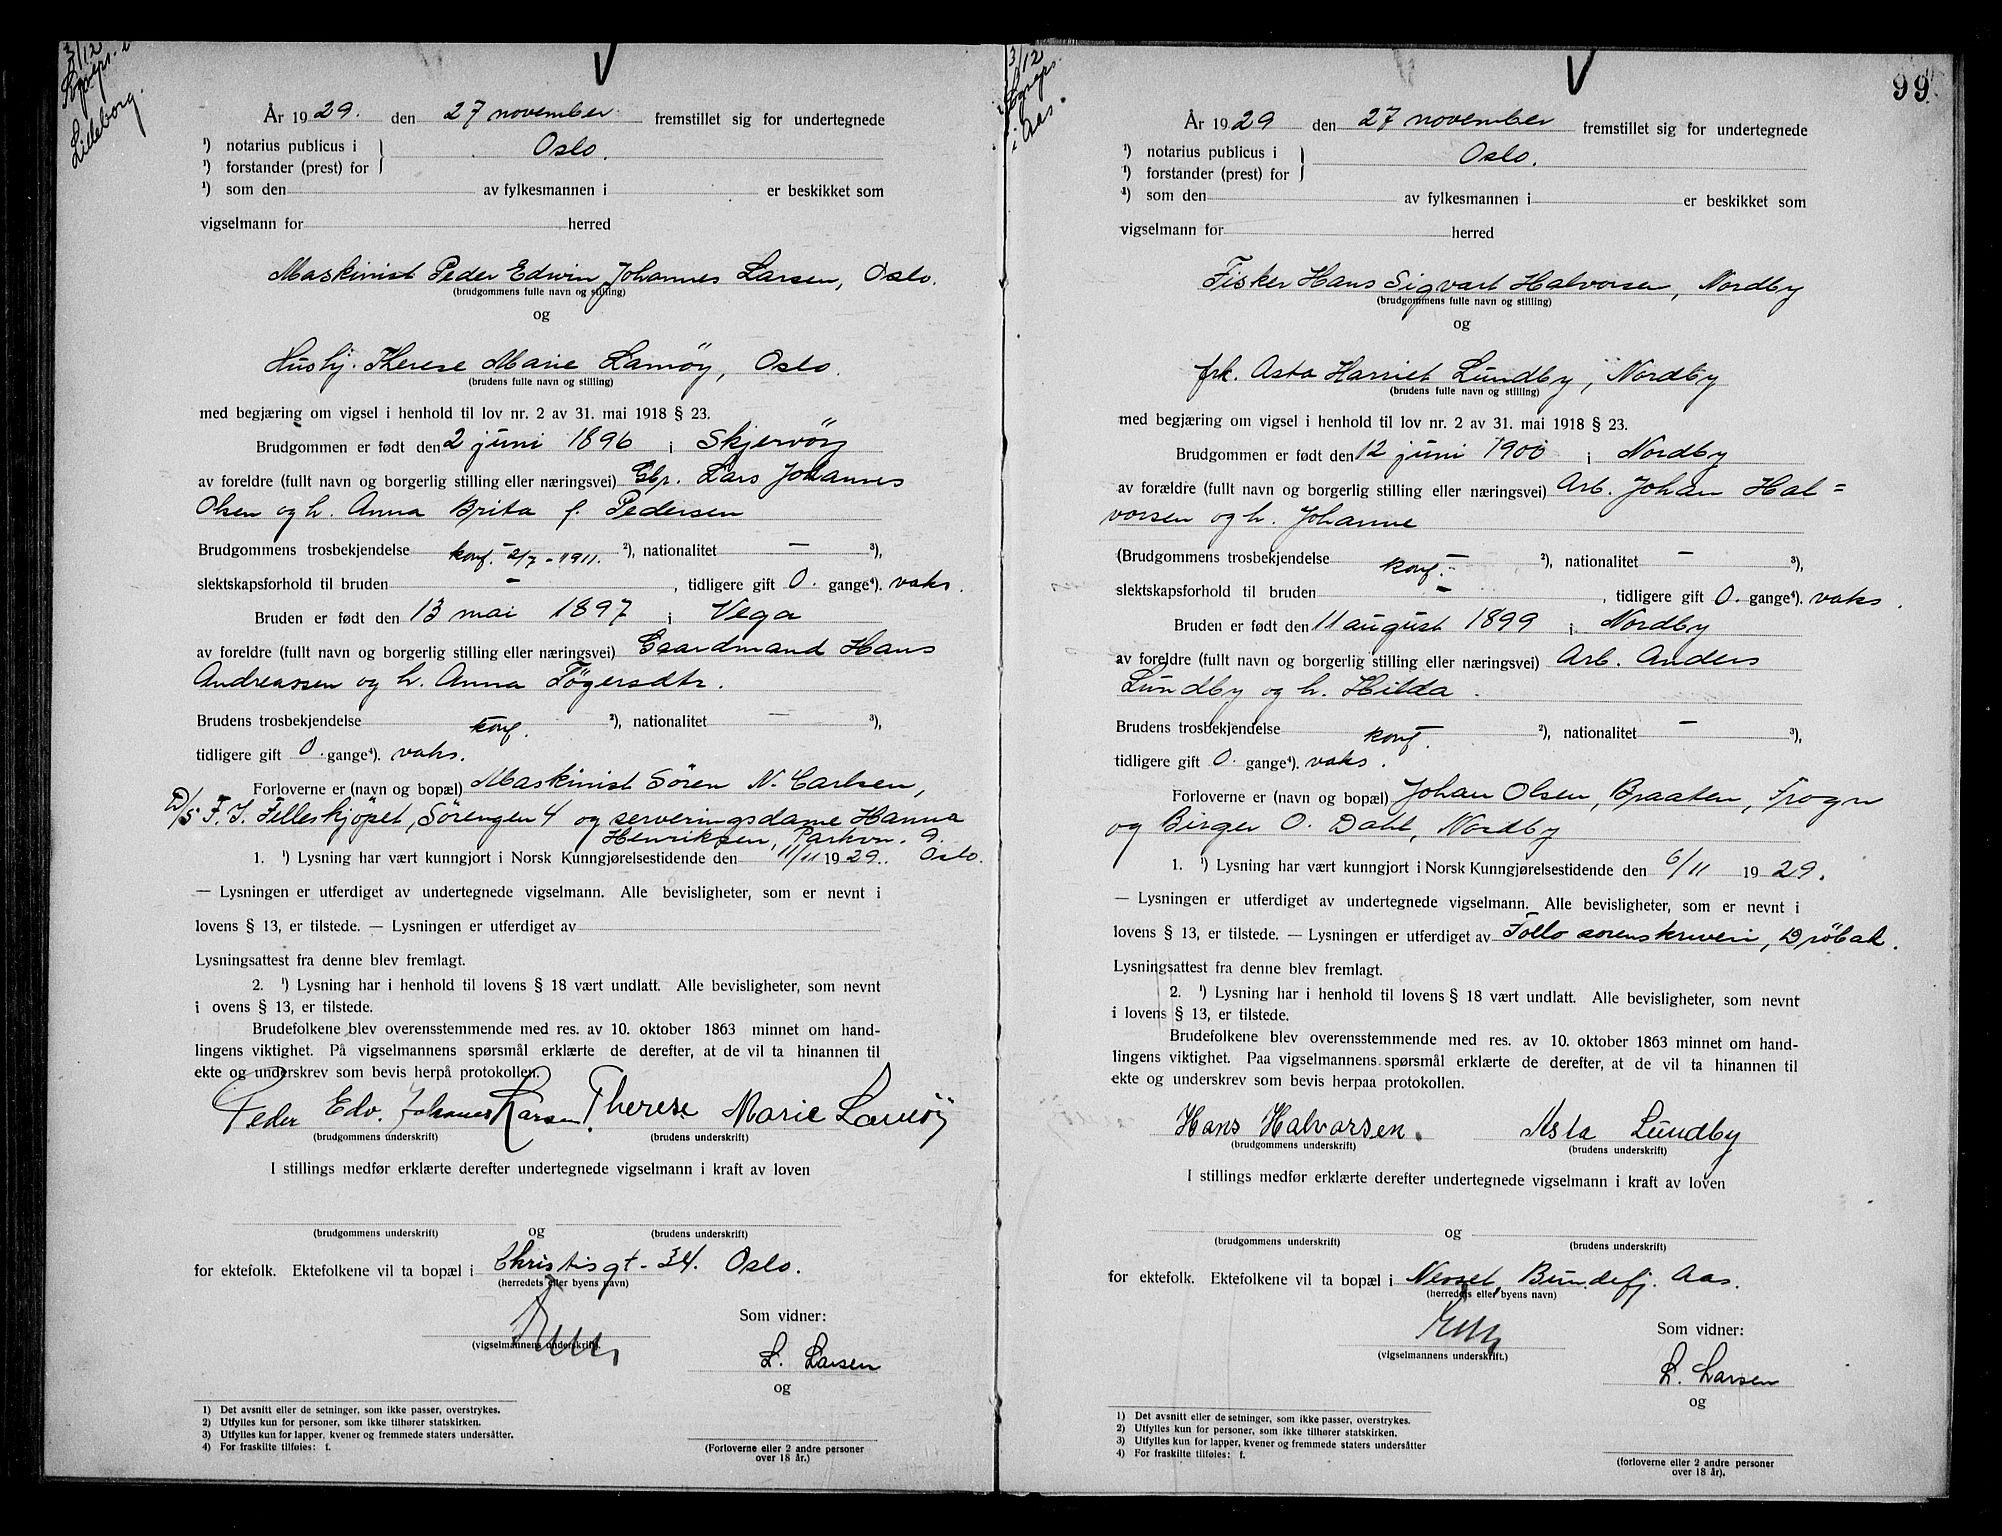 3/12
Lilleborg.
År 1929. den 27 november fremstillet sig for undertegnede
¹) notarius publicus i } Oslo.
¹) forstander (prest) for
¹) som den av fylkesmannen i er beskikket som
vigselmann for herred
Maskinist Peder Edwin Johannes Larsen, Oslo.
(brudgommens fulle navn og stilling)
og
Hushj. Therese Marie Lamøy, Oslo.
(brudens fulle navn og stilling)
med begjæring om vigsel i henhold til lov nr. 2 av 31. mai 1918 § 23.
Brudgommen er født den 2 juni 1896 i Skjervöy
av foreldre (fullt navn og borgerlig stilling eller næringsvei) Gbr. Lars Johannes
Olsen og h. Anna Brita f. Pedersen
Brudgommens trosbekjendelse konf. 2/7 - 1911. ²), nationalitet — ³),
slektskapsforhold til bruden — , tidligere gift 0. gange⁴). vaks.
Bruden er født den 13 mai 1897 i Vega
av foreldre (fullt navn og borgerlig stilling eller næringsvei) Gaardmand Hans
Andreassen og h. Anna Fögersdtr.
Brudens trosbekjendelse konf. ²), nationalitet — ³),
tidligere gift 0. gange⁴). vaks.
Forloverne er (navn og bopæl) Maskinist Sören N. Carlsen,
D/S F. I. Felleskjöpet, Sörengen 4 og serveringsdame Hanna
Henriksen, Parkvn. 9.
1. ¹) Lysning har vært kunngjort i Norsk Kunngjørelsestidende den 11/11 1929. Oslo.
— Lysningen er utferdiget av undertegnede vigselmann. Alle bevisligheter, som er nevnt i
lovens § 13, er tilstede. — Lysningen er utferdiget av
Lysningsattest fra denne blev fremlagt.
2. ¹) Lysning har i henhold til lovens § 18 vært undlatt. Alle bevisligheter, som nevnt
i ovens § 13, er tilstede.
Brudefolkene blev overensstemmende med res. av 10. oktober 1863 minnet om hand-
lingens viktighet. På vigselmannens spørsmål erklærte de derefter, at de vil ta hinannen til
ekte og underskrev som bevis herpå protokollen.
Peder Edv. Johanes Larsen. Therese Marie Lamöy
(brudgommens underskrift) (brudens underskrift)
I stillings medfør erklærte derefter undertegnede vigselmann i kraft av loven
og
(brudgommens underskrift) (brudens underskrift)
for ektefolk. Ektefolkene vil ta bopæl i Christisgt. 34. Oslo.
(herredets eller byens navn)
Som vidner:
(vigselmannens underskrift).
L. Larsen
og
1) Det avsnitt eller de setninger, som ikke passer, overstrykes.
2) Utfylles kun for personer, som ikke tilhører statskirken.
3) Utfylles kun for lapper, kvener og fremmede staters undersåtter.
4) For fraskilte tilføles: f.
(Forloverne eller 2 andre personer
over 18 år.)
99
3/12
i Aas.
År 1929 den 27 november fremstillet sig for undertegnede
¹) notarius publicus i } Oslo.
¹) forstander (prest) for
¹) som den av fylkesmannen i er beskikket som
vigselmann for herred
Fisker Hans Sigvart Halvorsen, Nordby
(brudgommens fulle navn og stilling)
og
frk. Asta Harriet Lundby, Nordby
(brudens fulle navn og stilling)
med begjæring om vigsel i henhold til lov nr. 2 av 31. mai 1918 § 23.
Brudgommen er født den 12 juni 1900 i Nordby
av forældre (fullt navn og borgerlig stilling eller næringsvei) Arb. Johan Hal=
vorsen og h. Johanne
(Brudgommens trosbekjendelse konf. — ²), nationalitet — ³),
slektskapsforhold til bruden — , tidligere gift 0. gange⁴). vaks.
Bruden er født den 11 august 1899 i Nordby
av foreldre (fullt navn og borgerlig stilling eller næringsvei) Arb. Anders
Lundby og h. Hilda.
Brudens trosbekjendelse konf. ²), nationalitet — ³),
tidligere gift 0. gange⁴). vaks.
Forloverne er (navn og bopæl) Johan Olsen, Braaten, Frogn
og Birger O. Dahl, Nordby
1. ¹) Lysning har vært kunngjort i Norsk Kunngjørelsestidende den 6/11 1929.
— Lysningen er utferdiget av undertegnede vigselmann. Alle bevisligheter, som er nevnt i
lovens § 13, er tilstede. — Lysningen er utferdiget av Follo sorenskriveri, Dröbak.
Lysningsattest fra denne blev fremlagt.
2. ¹) Lysning har i henhold til lovens § 18 vært undlatt. Alle bevisligheter, som nevnt
i lovens § 13, er tilstede.
Brudefolkene blev overensstemmende med res. av 10. oktober 1863 minnet om hand-
lingens viktighet. Paa vigselmannens spørsmål erklærte de derefter, at de vil ta hinannen til
ekte og underskrev som bevis herpaa protokollen.
Hans Halvorsen. Asta Lundby
(brudgommens underskrift) (brudens underskrift)
I stillings medfør erklærte derefter undertegnede vigselmann i kraft av loven
og
(brudgommens underskrift) (brudens underskrift)
for ektefolk. Ektefolkene vil ta bopæl i Nesset, Bundefj. Aas.
(herredets eller byens navn)
Som vidner:
(vigselmannens underskrift.)
L. Larsen
og
1) Det avsnitt eller de setninger, som ikke passer, overstrykes.
2) Utfylles kun for personer, som ikke tilhører statskirken.
3) Utfylles kun for lapper, kvener og fremmede staters undersåtter
4) For fraskilte tilføles: f.
(forloverne eller 2 andre personer
over 18 år).